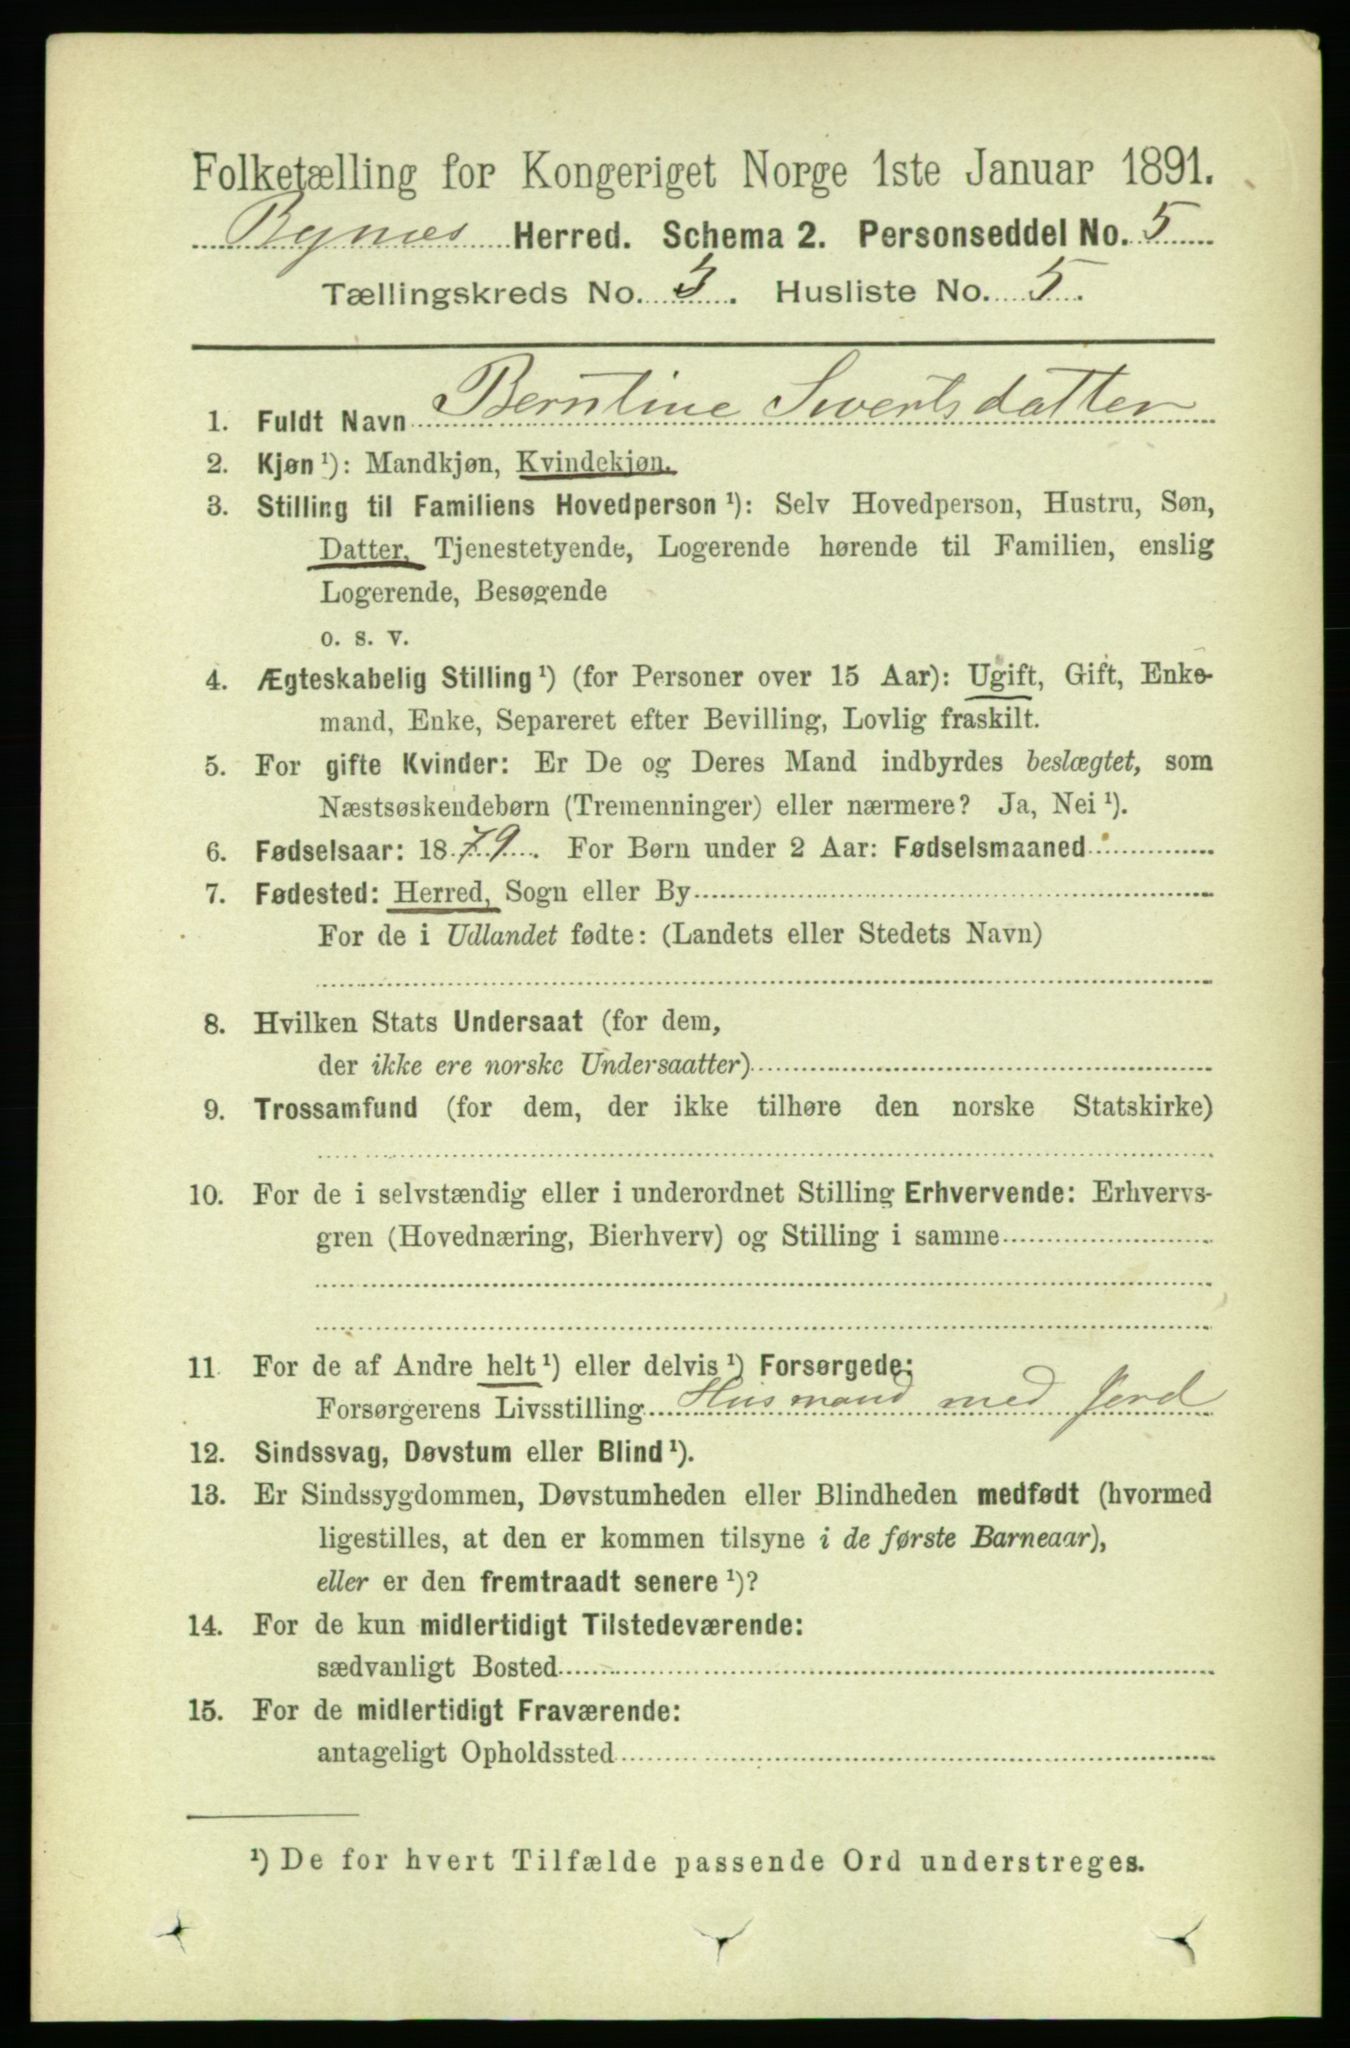 Folketælling for Kongeriget Norge 1ste Januar 1891.
Bynæs Herred. Schema 2. Personseddel No. 5
Tællingskreds No. 3. Husliste No. 5.
1. Fuldt Navn Berntine Sivertsdatter
2. Kjøn ¹): Mandkjøn, Kvindekjøn.
3. Stilling til Familiens Hovedperson ¹): Selv Hovedperson, Hustru, Søn,
Datter, Tjenestetyende, Logerende hørende til Familien, enslig
Logerende, Besøgende
o. s. v.
4. Ægteskabelig Stilling ¹) (for Personer over 15 Aar): Ugift, Gift, Enke-
mand, Enke, Separeret efter Bevilling, Lovlig fraskilt.
5. For gifte Kvinder: Er De og Deres Mand indbyrdes beslægtet, som
Næstsøskendebørn (Tremenninger) eller nærmere? Ja, Nei ¹).
6. Fødselsaar: 1879. For Børn under 2 Aar: Fødselsmaaned
7. Fødested: Herred, Sogn eller By
For de i Udlandet fødte: (Landets eller Stedets Navn)
8. Hvilken Stats Undersaat (for dem,
der ikke ere norske Undersaatter)
9. Trossamfund (for dem, der ikke tilhøre den norske Statskirke)
10. For de i selvstændig eller i underordnet Stilling Erhvervende: Erhvervs-
gren (Hovednæring, Bierhverv) og Stilling i samme
11. For de af Andre helt ¹) eller delvis ¹) Forsørgede:
Forsørgerens Livsstilling Husmand med Jord
12. Sindssvag, Døvstum eller Blind ¹).
13. Er Sindssygdommen, Døvstumheden eller Blindheden medfødt (hvormed
ligestilles, at den er kommen tilsyne i de første Barneaar),
eller er den fremtraadt senere ¹)?
14. For de kun midlertidigt Tilstedeværende:
sædvanligt Bosted
15. For de midlertidigt Fraværende:
antageligt Opholdssted
¹) De for hvert Tilfælde passende Ord understreges.